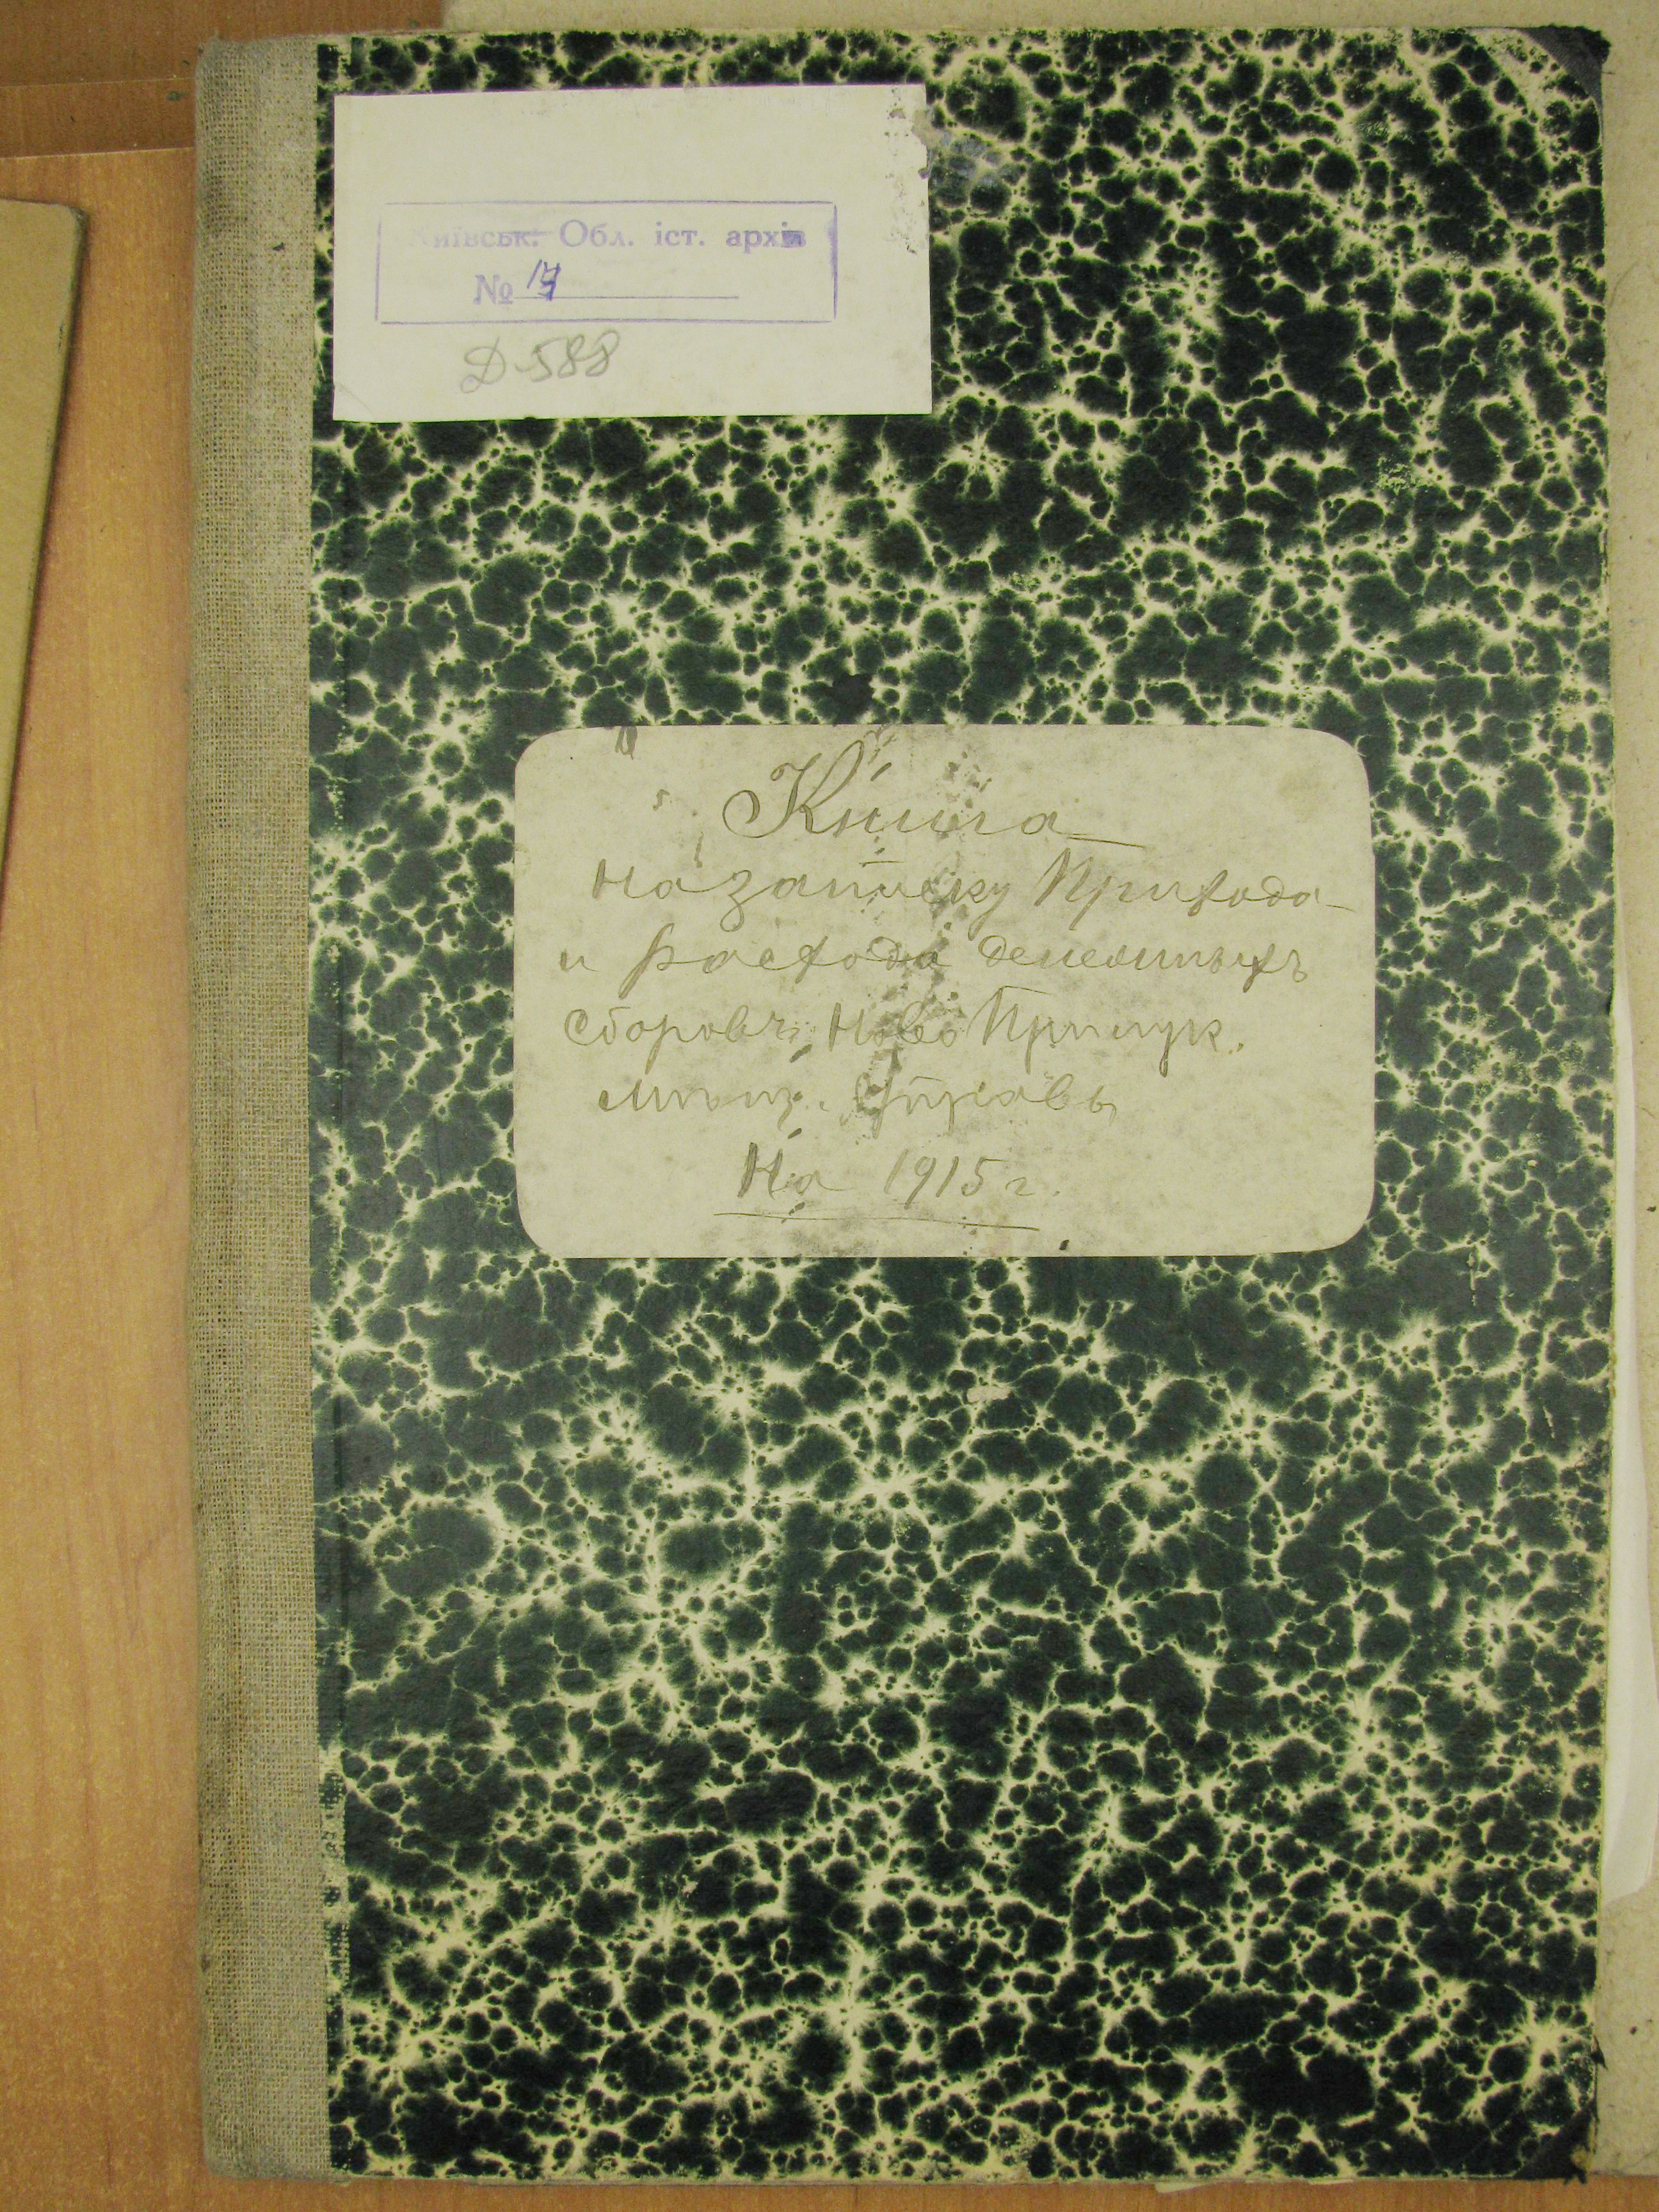 Київськ. Обл. іст. архів
№ 17
Д-588
Книга
на записку Прихода
и Расхода денежныхъ
сборовъ Ново Прилук.
мѣщ. Управы
На 1915 г.